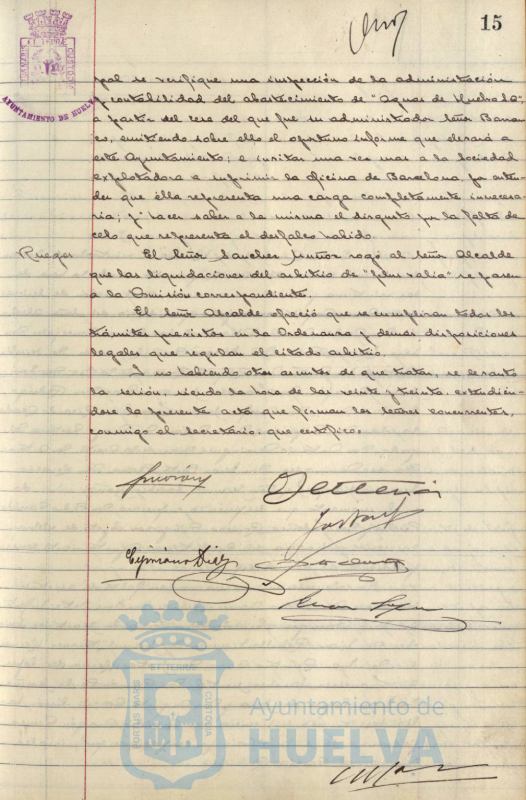 15
AYUNTAMIENTO DE HUELVA
pal se verifique una inspección de la administración
y contabilidad del abastecimiento de "Aguas de Huelva S.A."
a partir del cese del que fué su administrador Señor Barran-
co, emitiendo sobre ello el oportuno informe que elevará a
este Ayuntamiento; e invitar una vez mas a la Sociedad
explotadora a suprimir la oficina de Barcelona, por enten-
der que élla representa una carga completamente innecesa-
ria; y hacer saber a la misma el disgusto por la falta de
celo que representa el desfalco habido.
Ruegos
El Señor Sanchez Muñoz rogó al Señor Alcalde
que las liquidaciones del arbitrio de "plus valia" se pasen
a la Comisión correspondiente.
El Señor Alcalde ofreció que se cumplirán todos los
trámites previstos en la Ordenanza y demas disposiciones
legales que regulan el citado arbitrio.
Y no habiendo otros asuntos de que tratar, se levantó
la sesión, siendo la hora de las veinte y treinta, extendién-
dose la presente acta que firman los señores concurrentes,
conmigo el Secretario, que certifico.
Cipriano Diaz
PORTUS MARIS ET TERRÆ CUSTODIA
Ayuntamiento de
HUELVA